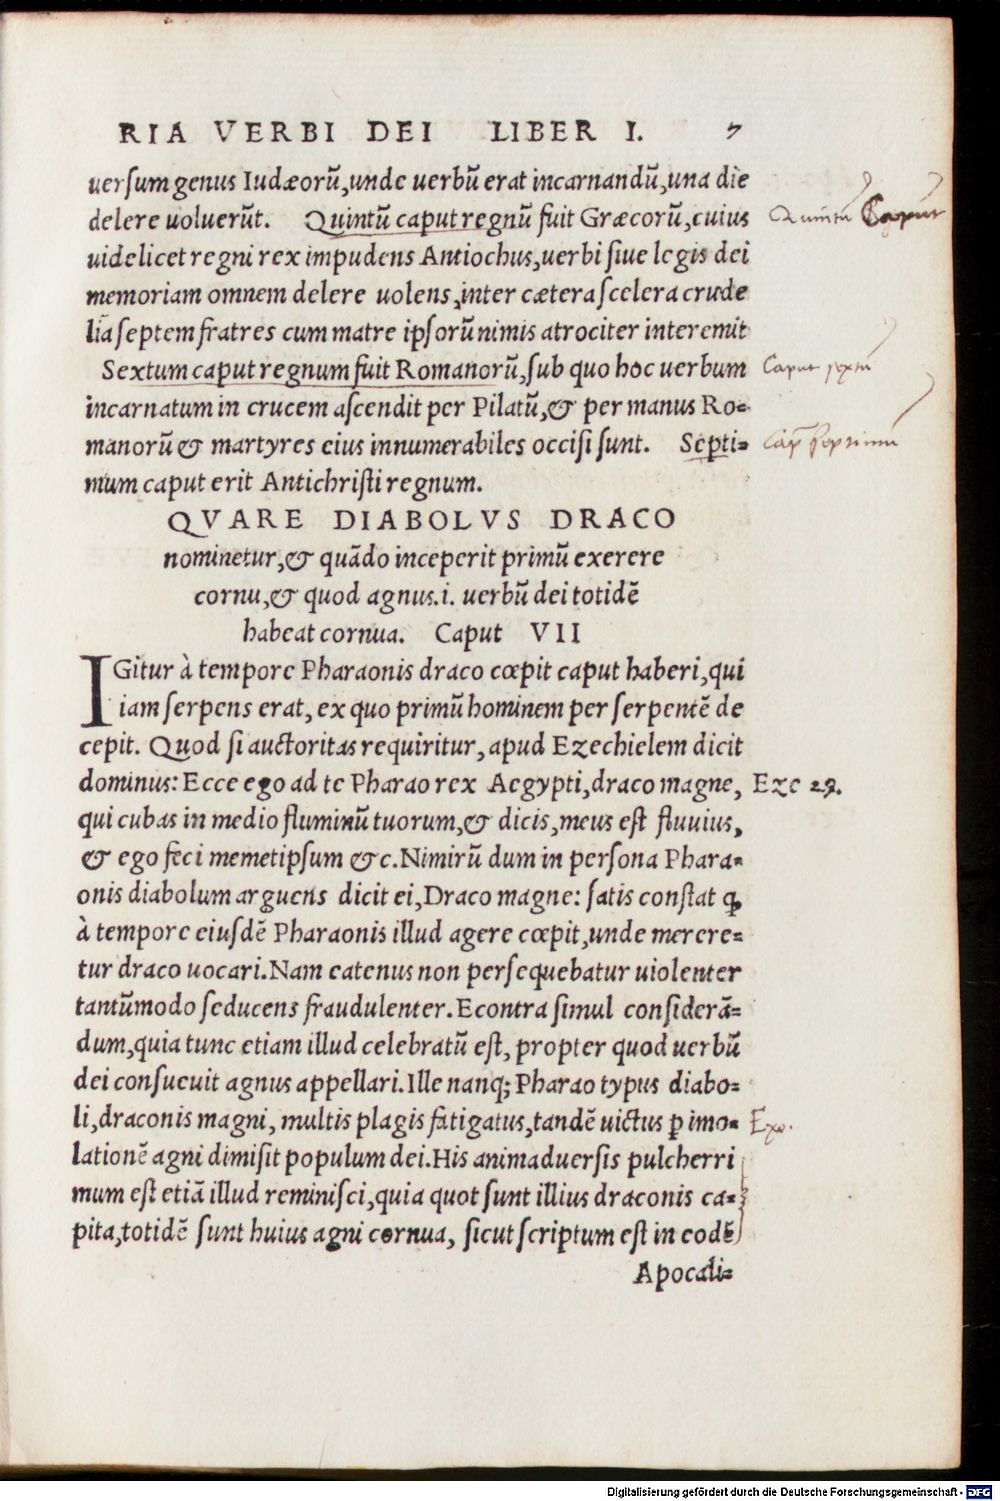 RIA VERBI DEI LIBER I. 7
uersum genus Iudæorũ, unde uerbũ erat incarnandũ, una die
delere uoluerũt. Quintũ caput regnũ fuit Græcorũ, cuius
Quintũ Caput
uidelicet regni rex impudens Antiochus, uerbi siue legis dei
memoriam omnem delere uolens, inter cætera scelera crude
lia septem fratres cum matre ipsorũ nimis atrociter interemit
Sextum caput regnum fuit Romanorũ, sub quo hoc uerbum
Caput sextũ
incarnatum in crucem ascendit per Pilatũ, & per manus Ro=
manorũ & martyres eius innumerabiles occisi sunt. Septi=
Cap septimũ
mum caput erit Antichristi regnum.
QVARE DIABOLVS DRACO
nominetur, & quãdo inceperit primũ exerere
cornu, & quod agnus .i. uerbũ dei totidẽ
habeat cornua. Caput VII
IGitur à tempore Pharaonis draco cœpit caput haberi, qui
iam serpens erat, ex quo primũ hominem per serpentẽ de
cepit. Quod si auctoritas requiritur, apud Ezechielem dicit
dominus: Ecce ego ad te Pharao rex Aegypti, draco magne,
Eze 29.
qui cubas in medio fluminũ tuorum, & dicis, meus est fluuius,
& ego feci memetipsum &c. Nimirũ dum in persona Phara=
onis diabolum arguens dicit ei, Draco magne: satis constat ꝙ
à tempore eiusdẽ Pharaonis illud agere cœpit, unde merere=
tur draco uocari. Nam eatenus non persequebatur uiolenter
tantũmodo seducens fraudulenter. Econtra simul considerã=
dum, quia tunc etiam illud celebratũ est, propter quod uerbũ
dei consueuit agnus appellari. Ille nanq; Pharao typus diabo=
li, draconis magni, multis plagis fatigatus, tandẽ uictus ꝑ imo=
Exo.
lationẽ agni dimisit populum dei. His animaduersis pulcherri
mum est etiã illud reminisci, quia quot sunt illius draconis ca=
pita, totidẽ sunt huius agni cornua, sicut scriptum est in eodẽ
Apocali=
Digitalisierung gefördert durch die Deutsche Forschungsgemeinschaft - DFG